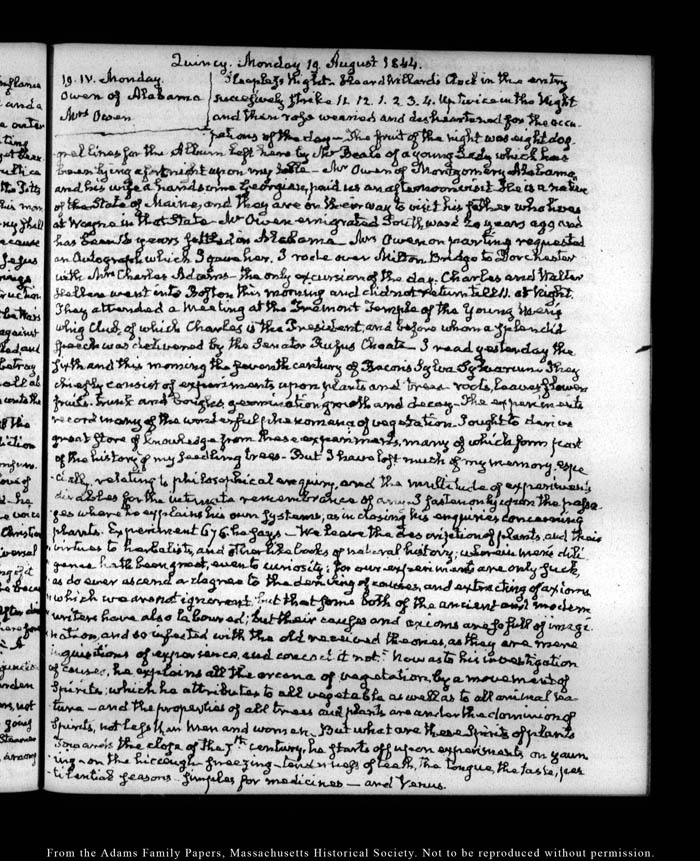 Quincy. Monday 19. August 1844.
19. IV. Monday.
Owen of Alabama
Mrs Owen
Sleepless Night. Heard Willard's Clock in the entry
successively strike 11. 12. 1. 2. 3. 4. Up twice in the Night
and then rose wearied and disheartened for the occu-
pations of the day — The fruit of the night was eight dog-
grel lines for the Album left here by Mr Beals of a young Lady which has
been lying a fortnight upon my table — Mr Owen of Montgomery Alabama
and his wife a handsome Georgian, paid us an afternoon visit. He is a native
of the State of Maine, and they are on their way to visit his father who lives
at Wayne in that State — Mr Owen emigrated South ward 20 years ago and
has been years settled in Alabama — Mrs Owen on parting requested
an Autograph which I gave her. I rode over Milton Bridge to Dorchester
with Mrs Charles Adams — the only excursion of the day. Charles and Walter
Hellen went into Boston this morning and did not return till 11. at Night.
They attended a Meeting at the Tremont Temple of the Young Men's
Whig Club, of which Charles is the President, and before whom a splendid
speech was delivered by the Senator Rufus Choate — I read yesterday the
sixth and this morning the seventh century of Bacon's Sylva Sylvarum. They
chiefly consist of experiments upon plants and trees — roots, leaves flowers
fruits trunk and boughs, germination, growth and decay — The experiments
record many of the wonderful phenomena of vegetation. I ought to derive
great store of knowledge from these experiments, many of which form part
of the history of my seedling trees — But I have lost much of my memory, espe-
cially relating to philosophical enquiry, and the multitude of experiments
disables for the intimate remembrance of any. I fasten only upon the passa-
ges where he explains his own Systems, as in closing his enquiries concerning
plants. Experiment 676. he says — We leave the description of plants, and their
virtues to herbalists, and other like books of natural history; wherein men's dili-
gence hath been great, even to curiosity; for our experiments are only such,
as do ever ascend a degree to the deriving of causes, and extracting of axioms
which we are not ignorant but that some both of the ancient and modern
writers have also laboured; but their causes and axioms are so full of imagi-
nation, and so infected with the old received theories, as they are mere
inquisitions of experience, and concoct it not." Now as to his investigation
of causes, he explains all the arcana of vegetation, by a movement of
Spirits, which he attributes to all vegetable as well as to all animal na-
ture — and the properties of all trees and plants are under the dominion of
Spirits, not less than men and women. But what are these Spirits of plants
Towards the close of the 7th century, he starts off upon experiments on yawn-
ing — on the hiccough — sneezing — tenderness of teeth, the tongue, the taste, pes-
tilential seasons — simples for medicines — and Venus.
From the Adams Family Papers, Massachusetts Historical Society. Not to be reproduced without permission.